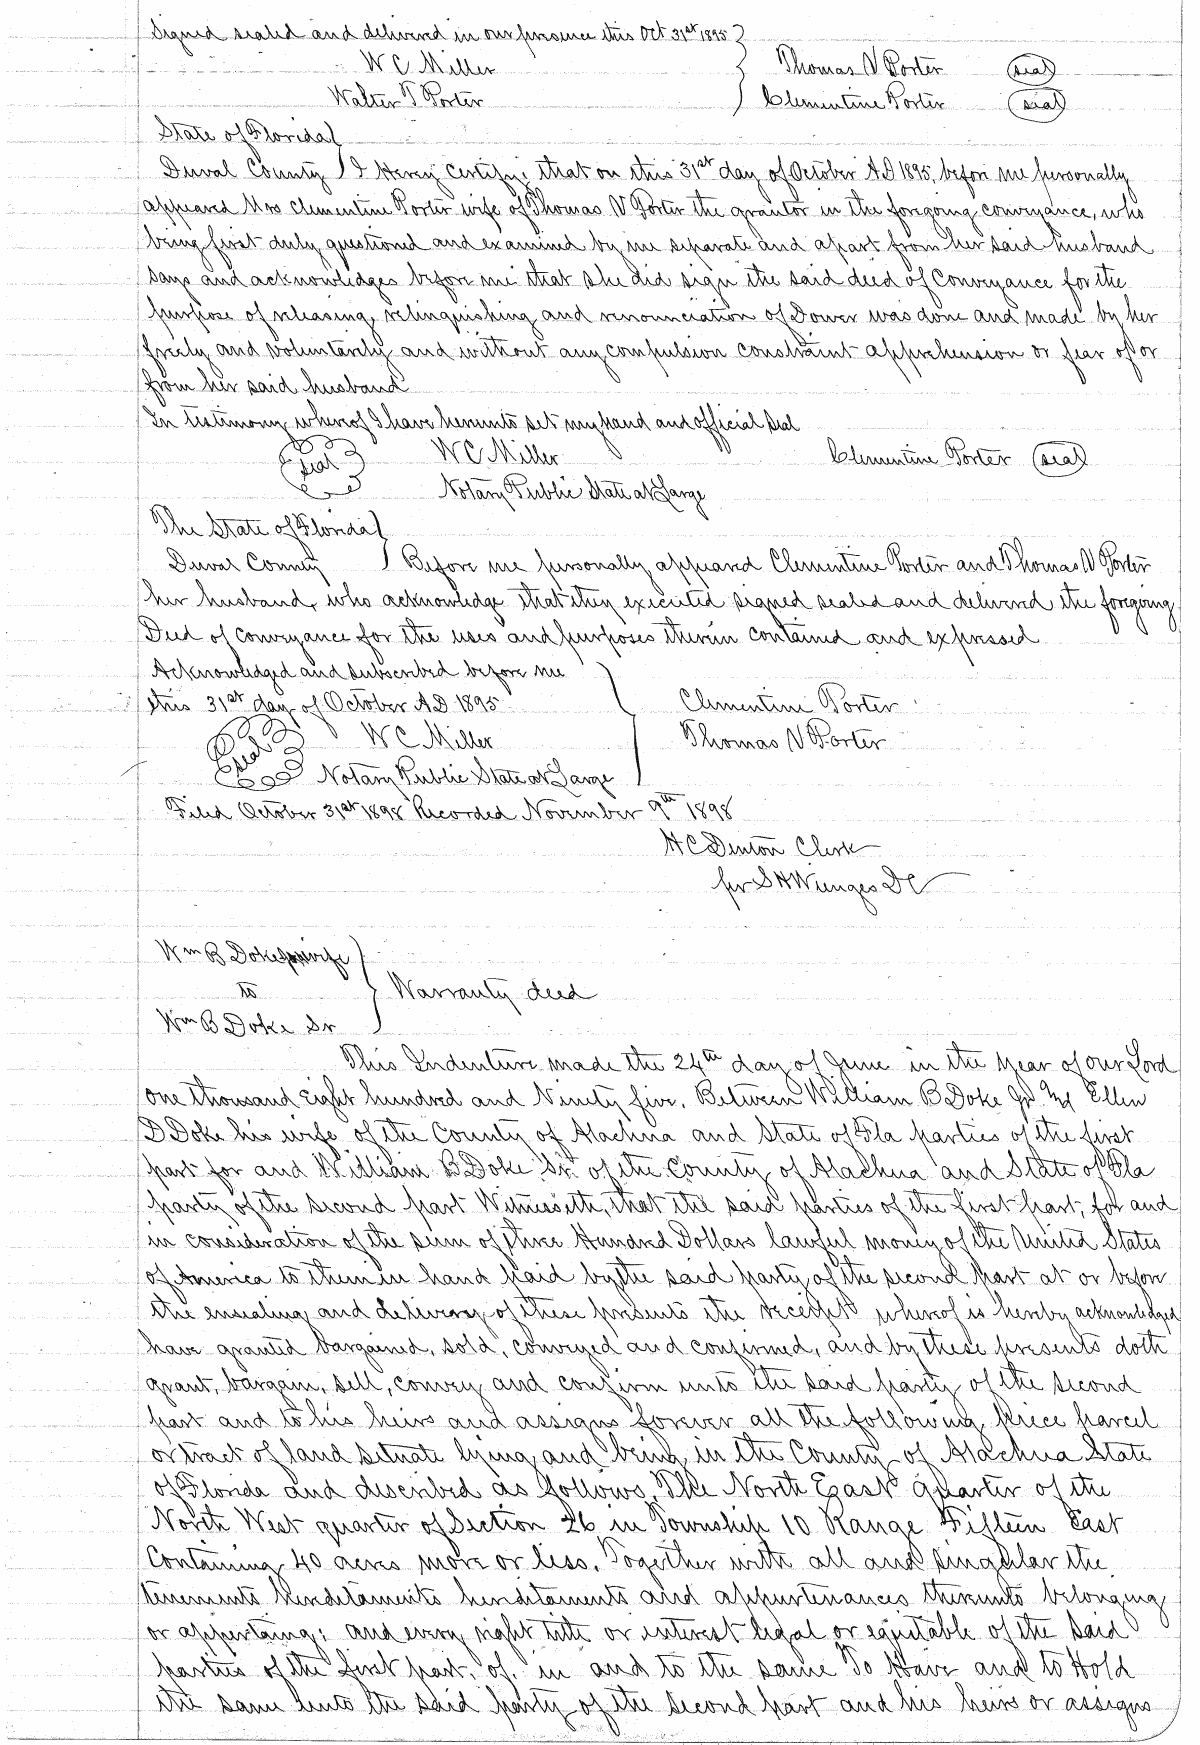 Signed sealed and delivered in our presence this Oct 31st 1895
W C Miller Thomas V Porter (seal)
Walter T Porter Clementine Porter (seal)
State of Florida
Duval County I Hereby Certify, that on this 31st day of October AD 1895, before me personally
appeared Mrs Clementine Porter wife of Thomas V Porter the grantor in the foregoing conveyance, who
being first duly questioned and examined by me separate and apart from her said husband
says and acknowledges before me that she did sign the said deed of Conveyance for the
purpose of releasing, relinquishing and renounciation of Dower was done and made by her
freely and voluntarely and without any compulsion constraint apprehension or fear of or
from her said husband
In testimony whereof I have hereunto set my hand and official seal
(seal) W C Miller Clementine Porter (seal)
Notary Public State at Large
The State of Florida
Duval County Before me personally appeared Clementine Porter and Thomas V Porter
her husband, who acknowledge that they executed signed sealed and delivered the foregoing
Deed of conveyance for the uses and purposes therein contained and expressed
Acknowledged and subscribed before me
this 31st day of October AD 1895 Clementine Porter
(seal) W C Miller Thomas V Porter
Notary Public State at Large
Filed October 31st 1898 Recorded November 9th 1898
H C Denton Clerk
per S H Wienges DC
Wm B Doke Jr wife
to Warranty deed
Wm B Doke Sr
This Indenture made the 24th day of June in the year of our Lord
one thousand Eight hundred and Ninety five. Between William B Doke Jr and Ellen
D Doke his wife of the County of Alachua and State of Fla parties of the first
part for and William B Doke Sr of the County of Alachua and State of Fla
party of the second part Witnesseth, that the said parties of the first part, for and
in consideration of the sum of three Hundred Dollars lawful money of the United States
of America to them in hand paid by the said party of the second part at or before
the ensealing and delivery of these presents the receipt whereof is hereby acknowledged
have granted bargained, sold, conveyed and confirmed, and by these presents doth
grant, bargain, sell, convey and confirm unto the said party of the second
part and to his heirs and assigns forever all the following piece parcel
or tract of land situate lying and being in the County of Alachua State
of Florida and described as follows. The North East quarter of the
North West quarter of Section 26 in Township 10 Range Fifteen East
Containing 40 acres more or less. Together with all and singular the
tenements herditaments herditaments and appurtenances thereunto belonging
or appertaing; and every right title or interest legal or equitable of the said
parties of the first part, of, in and to the same To Have and to Hold
the same unto the said party of the second part and his heirs or assigns